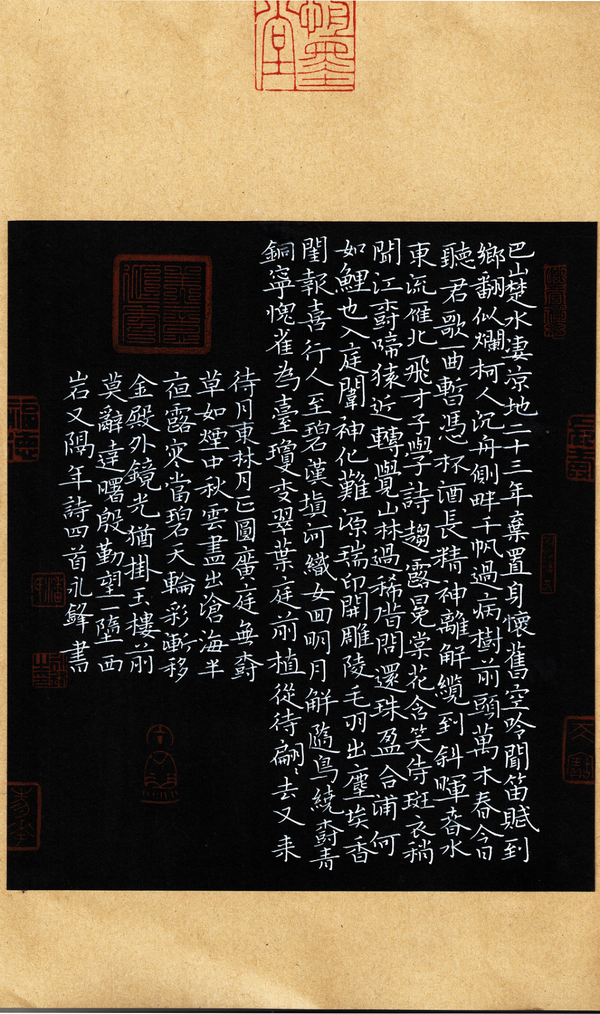 巴山楚水凄涼地二十三年棄置身懷舊空吟聞笛賦到
鄉翻似爛柯人沉舟側畔千帆過病樹前頭萬木春今日
聽君歌一曲暫憑杯酒長精神離解纜到斜暉春水
東流雁北飛才子學詩趨露冕棠花含笑侍斑衣稍
聞江樹啼猿近轉覺山林過稀借問還珠盈合浦何
如鯉也入庭闈神化難源瑞印開雕陵毛羽出塵埃香
閨報喜行人至碧漢填河織女回明月解隨鳥繞樹青
銅寧愧雀為臺瓊枝翠葉庭前植從待翩〻去又來
待月東林月正圓廣庭無樹
草如煙中秋雲盡出滄海半
夜露寒當碧天輪彩漸移
金殿外鏡光猶掛玉樓前
莫辭達曙殷勤望一墮西
岩又隔年詩四首永鋒書
福德